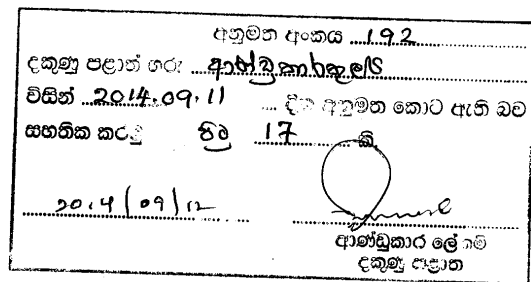 අනුමත අංකය 192
දකුණු පළාත් ගරු ආණ්ඩුකාරතුමා
විසින් 2014.09.11 දින අනුමත කොට ඇති බව
සහතික කරමු පිටු 17 කි.
2014/09/12
ආණ්ඩුකාර ලේකම්
දකුණු පළාත